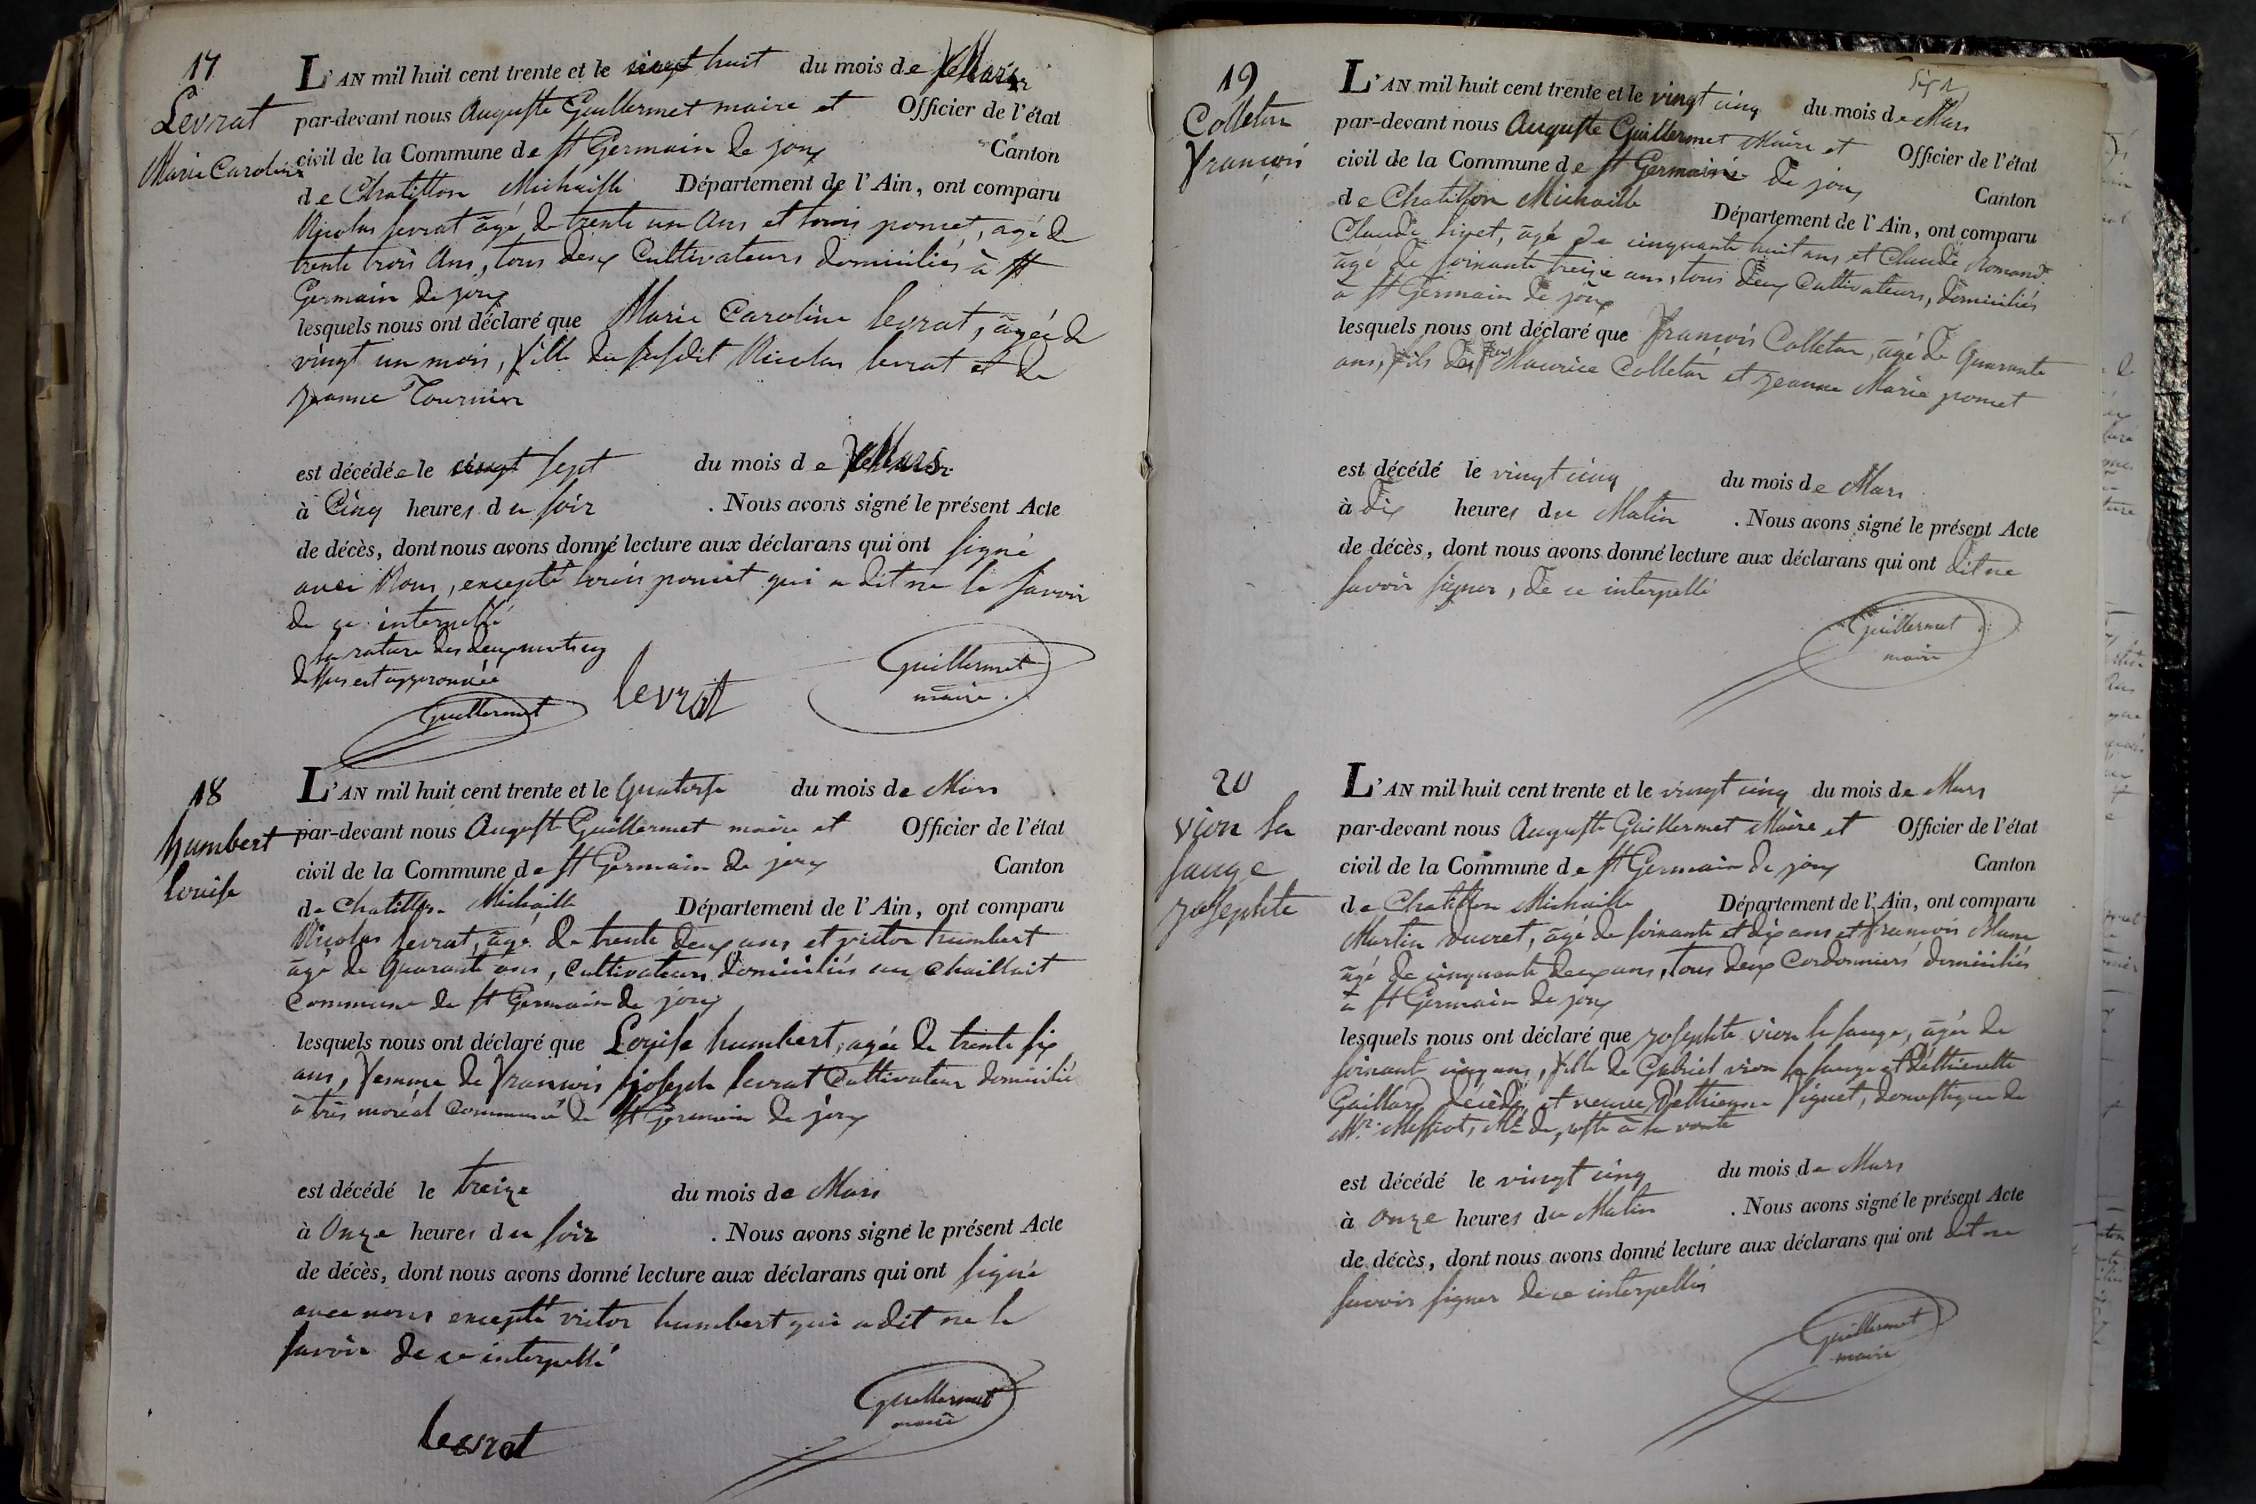 17
Levrat
Marie Caroline
L'AN mil huit cent trente et le vingt huit du mois de Mars
par-devant nous Auguste Guillermet maire et Officier de l'état
civil de la Commune de St Germain de joux Canton
de Chatillon Michaille Département de l'Ain, ont comparu
Nicolas levrat âgé de trente un ans et louis poncet, agé de
trente trois ans, tous deux Cultivateurs domiciliés à St
Germain de joux
lesquels nous ont déclaré que Marie Caroline levrat, âgée de
vingt un mois, fille du susdit Nicolas levrat et de
jeanne Tournier
est décédée le vingt sept du mois de Mars
à Cinq heures du soir . Nous avons signé le présent Acte
de décès, dont nous avons donné lecture aux déclarans qui ont signé
avec Nous, excepté louis poncet qui a dit ne le savoir
de ce interpellé
la rature des deux mots cy
dessus est approuvée
Guillermet
levrat
Guillermet
maire
18
humbert
louise
L'AN mil huit cent trente et le Quatorze du mois de Mars
par-devant nous Auguste Guillermet maire et Officier de l'état
civil de la Commune de St Germain de joux Canton
de Chatillon Michaille Département de l'Ain, ont comparu
Nicolas levrat, âgé de trente deux ans et victor humbert
âgé de Quarante ans, Cultivateurs domiciliés au Chaillait
Commune de St Germain de joux
lesquels nous ont déclaré que Louise humbert, agée de trente six
ans, femme de françois joseph levrat Cultivateur domicilié
à très moréal Commune de St Germain de joux
est décédé le treize du mois de Mars
à Onze heures du soir . Nous avons signé le présent Acte
de décès, dont nous avons donné lecture aux déclarans qui ont signé
avec nous excepté victor humbert qui a dit ne le
savoir de ce interpellé
levrat
Guillermet
maire
19
Colletaz
françois
L'AN mil huit cent trente et le vingt cinq du mois de Mars
par-devant nous Auguste Guillermet Maire et Officier de l'état
civil de la Commune de St Germain de joux Canton
de Chatillon Michaille Département de l'Ain, ont comparu
Claude âgé de cinquante huit ans et Claude Romand
âgé de soixante treize ans, tous deux Cultivateurs, domiciliés
à St Germain de joux
lesquels nous ont déclaré que françois Colletaz, âgé de Quarante
ans, fils des feu Maurice Colletaz et jeanne Marie poncet
est décédé le vingt cinq du mois de Mars
à Dix heures du Matin . Nous avons signé le présent Acte
de décès, dont nous avons donné lecture aux déclarans qui ont dit ne
savoir signer, de ce interpellé
Guillermet
maire
20
vion la
sauge
josephte
L'AN mil huit cent trente et le vingt cinq du mois de Mars
par-devant nous Auguste Guillermet Maire et Officier de l'état
civil de la Commune de St Germain de joux Canton
de Chatillon Michaille Département de l'Ain, ont comparu
Martin Ducret, âgé de soixante et dix ans et françois
âgé de cinquante deux ans, tous deux Cordonniers domiciliés
à St Germain de joux
lesquels nous ont déclaré que josephte vion la sauge, âgée de
soixante cinq ans, fille de Gabriel vion la sauge et d'éthiennette
Gaillard décédés, et veuve d'éthienne domestique de
Mr. Messiat, Me de poste à la voute
est décédé le vingt cinq du mois de Mars
à onze heures du Matin . Nous avons signé le présent Acte
de décès, dont nous avons donné lecture aux déclarans qui ont dit ne
savoir signer de ce interpellés
Guillermet
maire